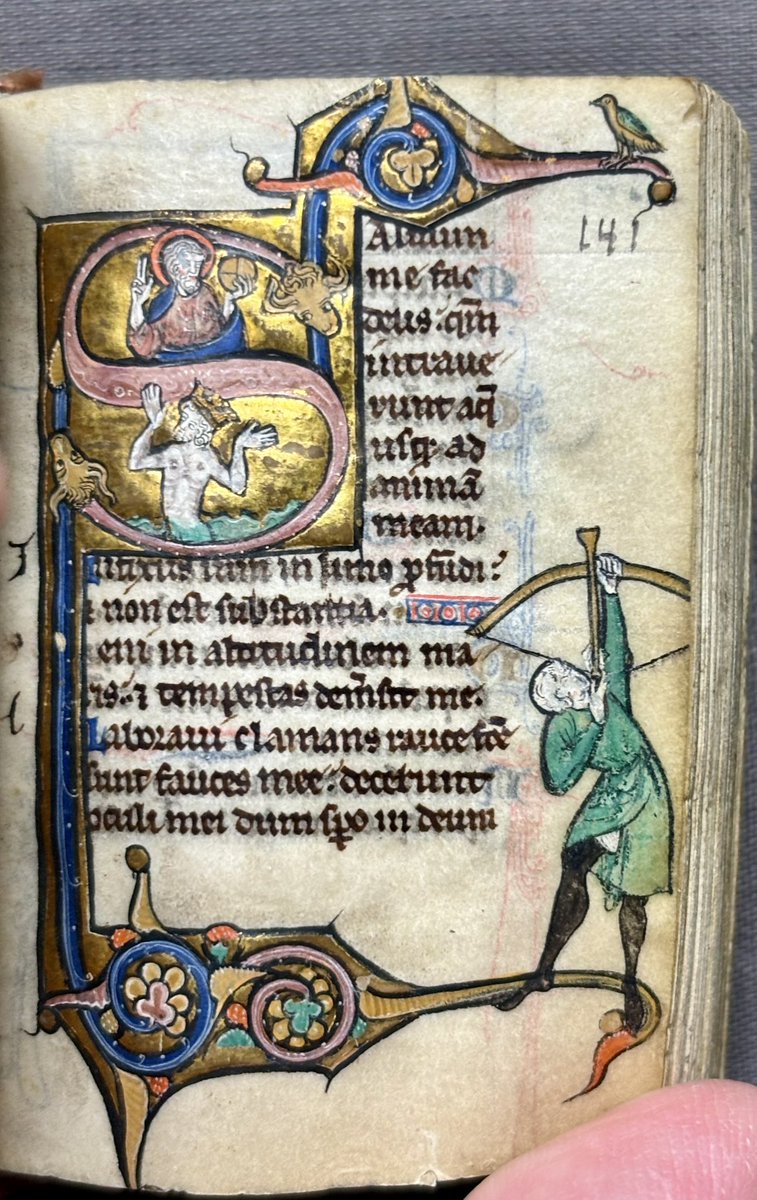 Saluum
141
me fac
deus. qm̄
intraue
runt aq̄
usq; ad
animā
meam.
Infixus sum in limo p̱fūdi:
⁊ non est substantia.
Ueni in altitudinem ma
ris: ⁊ tempestas dem̄sit me.
Laboraui clamans rauce fc̄e
sunt fauces mee: defecerunt
oculi mei dum sp̱o in deum